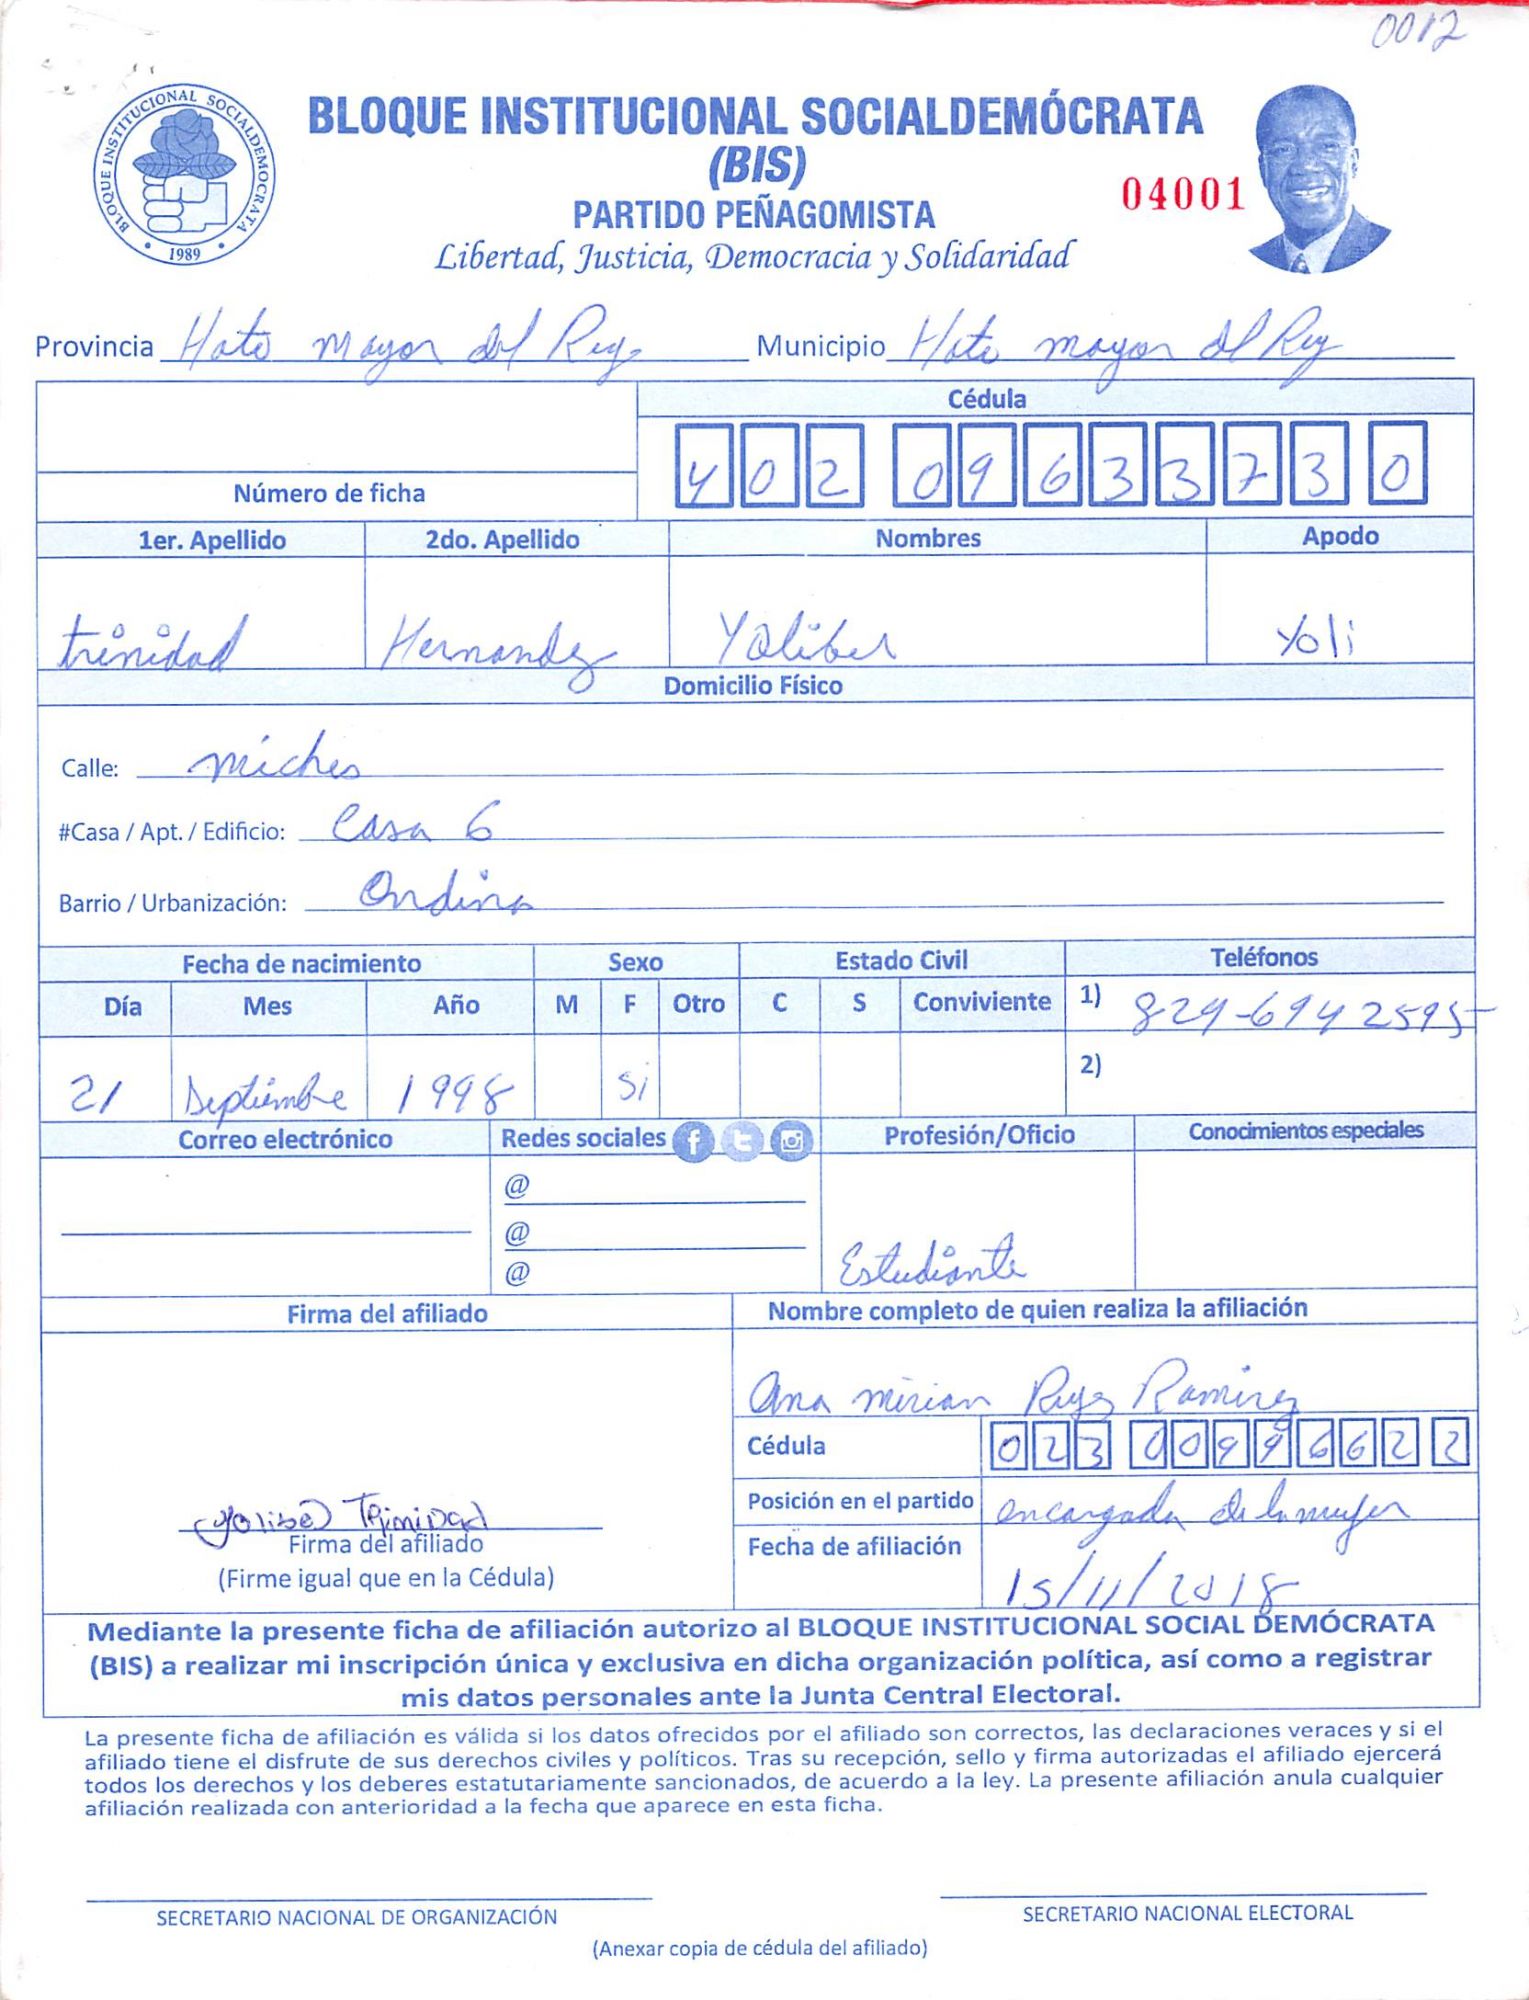 0012
BLOQUE INSTITUCIONAL SOCIALDEMOCRATA
1989
BLOQUE INSTITUCIONAL SOCIALDEMÓCRATA
(BIS)
PARTIDO PEÑAGOMISTA
04001
Libertad, Justicia, Democracia y Solidaridad
Provincia Hato mayor del Rey Municipio Hato mayor del Rey
Cédula
402 0963373 0
Número de ficha
1er. Apellido 2do. Apellido Nombres Apodo
trinidad Hernandez Yoliber Yoli
Domicilio Físico
Calle: miches
#Casa / Apt. / Edificio: Casa 6
Barrio / Urbanización: Ondina
Fecha de nacimiento Sexo Estado Civil Teléfonos
Día Mes Año M F Otro C S Conviviente 1) 829-694 2595
21 Septiembre 1998 Si 2)
Correo electrónico Redes sociales Profesión/Oficio Conocimientos especiales
@
@
@ Estudiante
Firma del afiliado Nombre completo de quien realiza la afiliación
Ana mirian Reyes Ramirez
Cédula 023 0099662 2
Posición en el partido encargada de la mujer
Yolibel Trinidad
Firma del afiliado
Fecha de afiliación 15/11/2018
(Firme igual que en la Cédula)
Mediante la presente ficha de afiliación autorizo al BLOQUE INSTITUCIONAL SOCIAL DEMÓCRATA
(BIS) a realizar mi inscripción única y exclusiva en dicha organización política, así como a registrar
mis datos personales ante la Junta Central Electoral.
La presente ficha de afiliación es válida si los datos ofrecidos por el afiliado son correctos, las declaraciones veraces y si el
afiliado tiene el disfrute de sus derechos civiles y políticos. Tras su recepción, sello y firma autorizadas el afiliado ejercerá
todos los derechos y los deberes estatutariamente sancionados, de acuerdo a la ley. La presente afiliación anula cualquier
afiliación realizada con anterioridad a la fecha que aparece en esta ficha.
SECRETARIO NACIONAL DE ORGANIZACIÓN SECRETARIO NACIONAL ELECTORAL
(Anexar copia de cédula del afiliado)